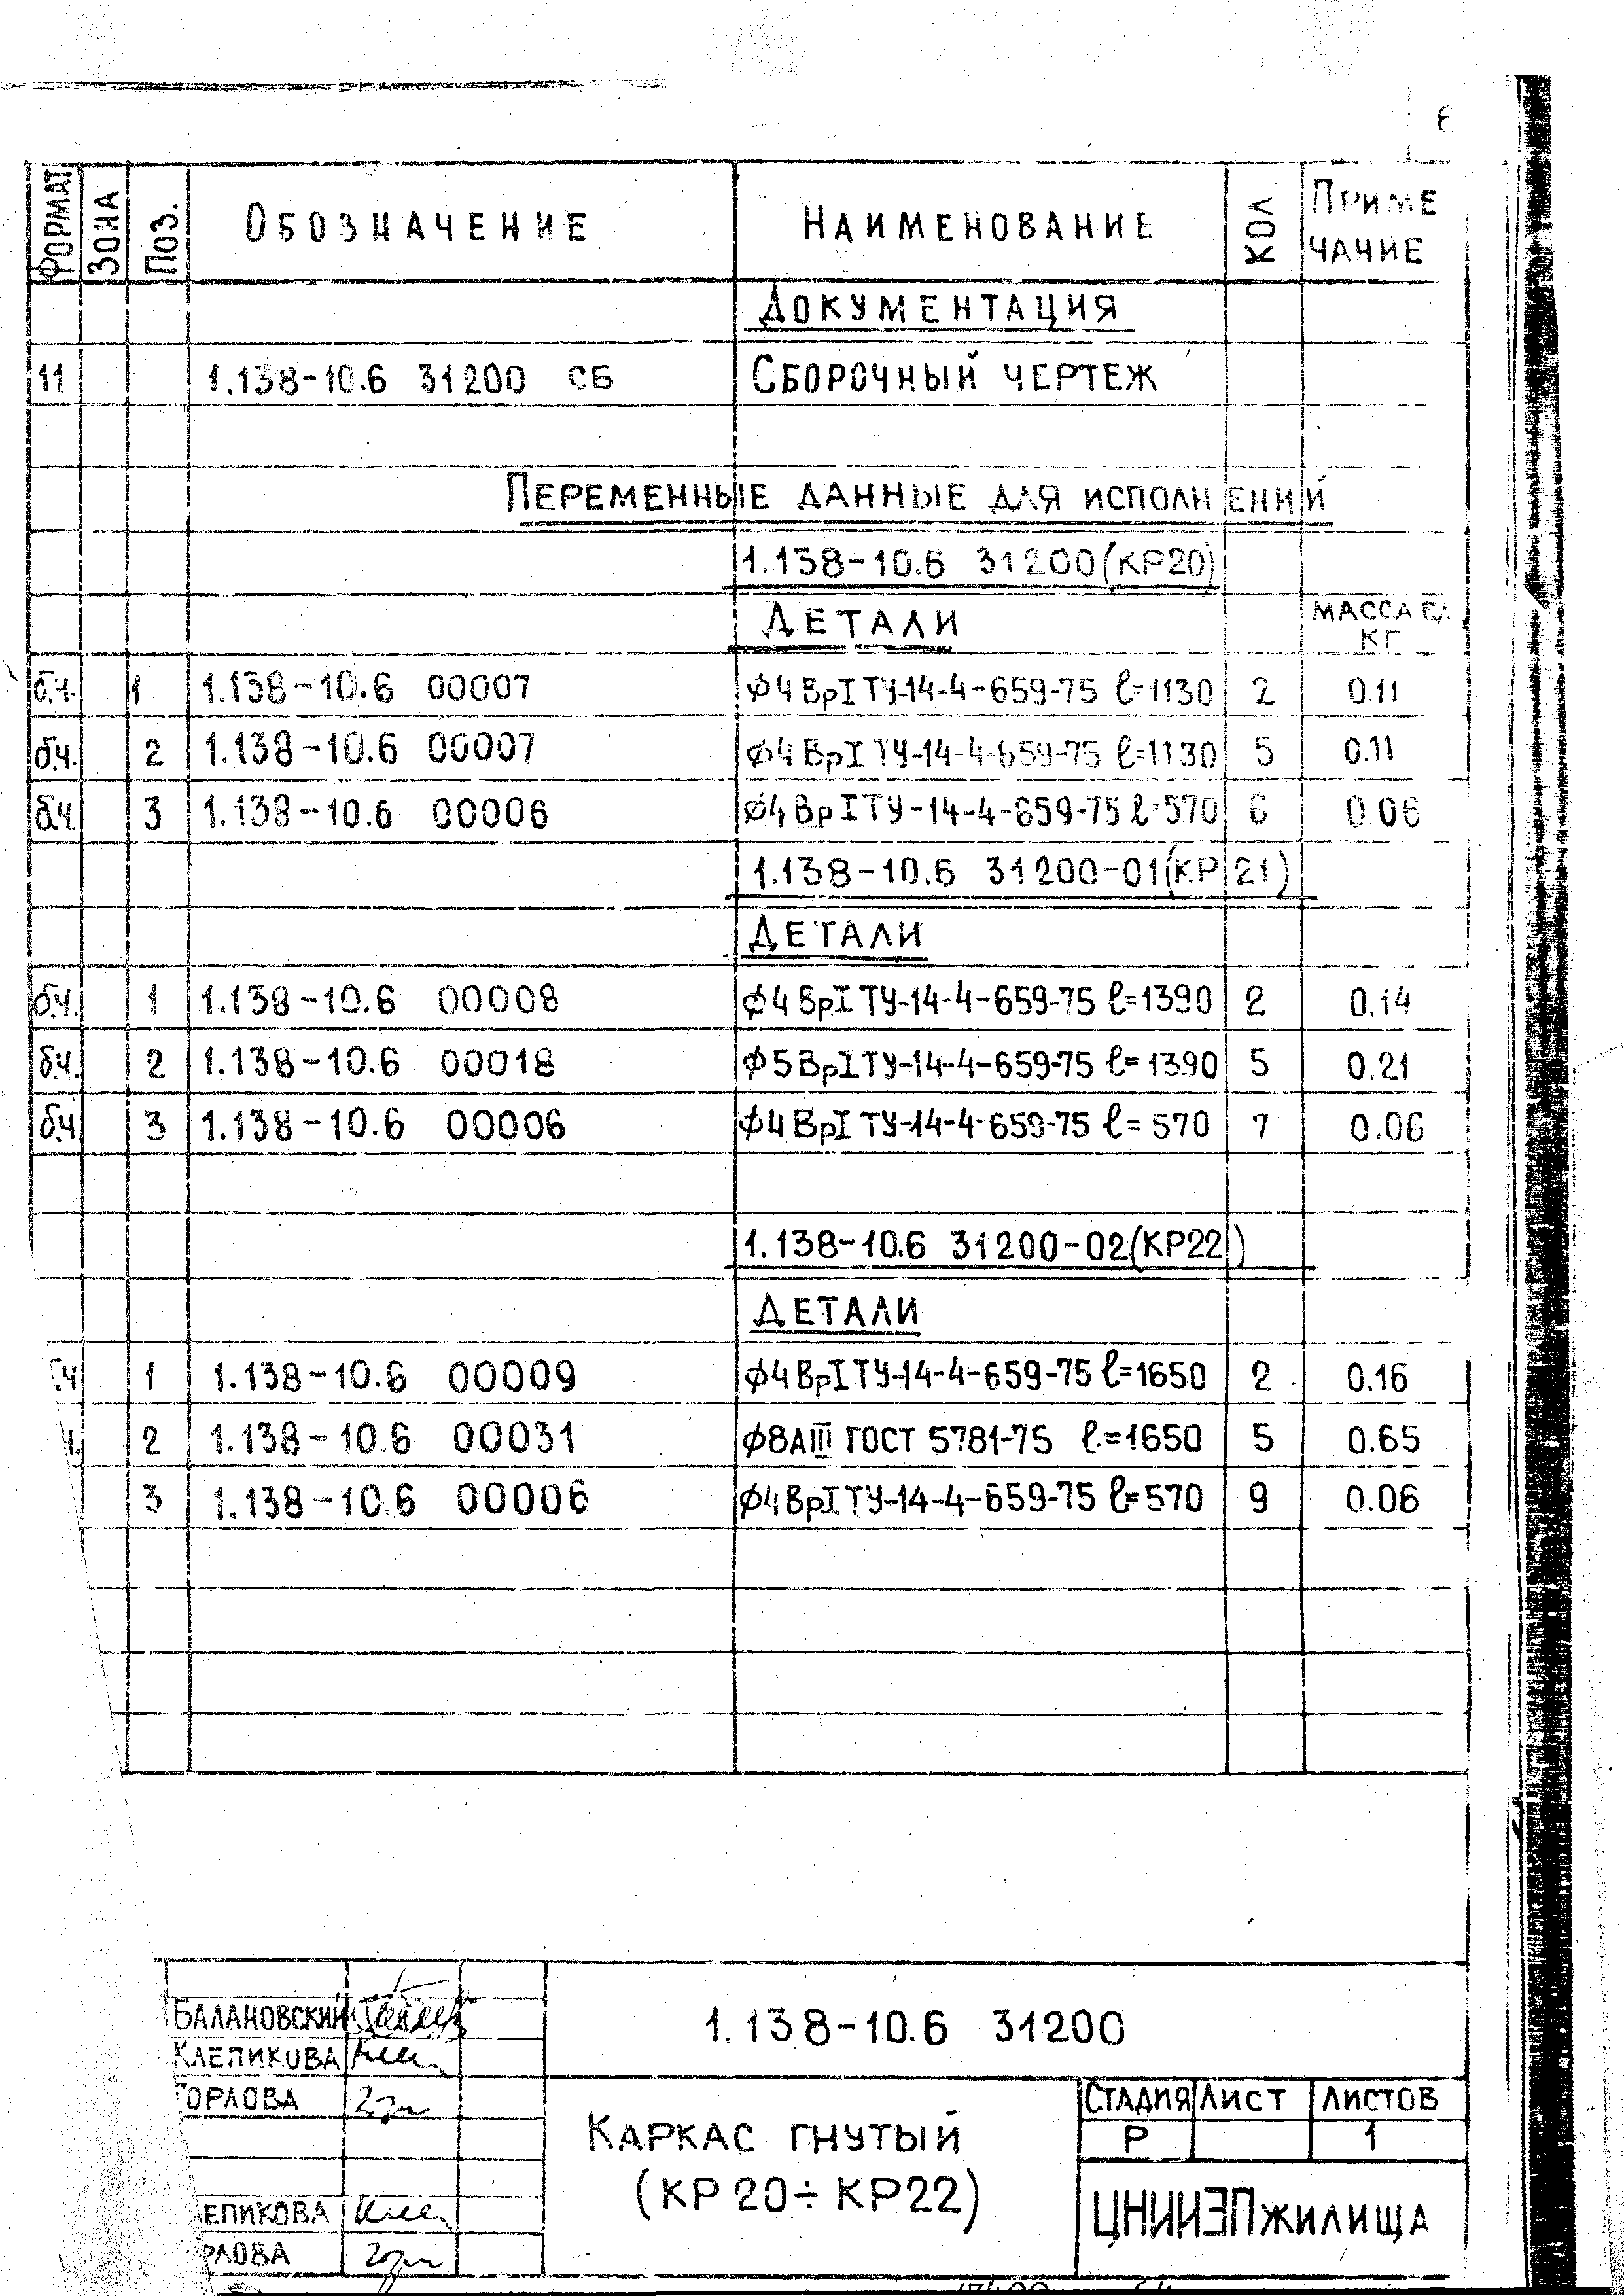 ФОРМАТ ЗОНА ПОЗ. ОБОЗНАЧЕНИЕ НАИМЕНОВАНИЕ КОЛ ПРИМЕ
ЧАНИЕ
ДОКУМЕНТАЦИЯ
11 1.138-10.6 31200 СБ СБОРОЧНЫЙ ЧЕРТЕЖ
ПЕРЕМЕННЫЕ ДАННЫЕ ДЛЯ ИСПОЛНЕНИЙ
1.138-10.6 31200(КР20)
ДЕТАЛИ МАССА
КГ
б.ч. 1 1.138-10.6 00007 ϕ4ВрI ТУ-14-4-659-75 ℓ=1130 2 0.11
б.ч. 2 1.138-10.6 00007 ϕ4ВрI ТУ-14-4-659-75 ℓ=1130 5 0.11
б.ч. 3 1.138-10.6 00006 ϕ4ВрI ТУ-14-4-659-75 ℓ=570 6 0.06
1.138-10.6 31200-01(КР21)
ДЕТАЛИ
б.ч. 1 1.138-10.6 00008 ϕ4ВрI ТУ-14-4-659-75 ℓ=1390 2 0.14
б.ч. 2 1.138-10.6 00018 ϕ5ВрI ТУ-14-4-659-75 ℓ=1390 5 0.21
б.ч 3 1.138-10.6 00006 ϕ4ВрI ТУ-14-4-659-75 ℓ=570 7 0.06
1.138-10.6 31200-02(КР22)
ДЕТАЛИ
.ч 1 1.138-10.6 00009 ϕ4ВрI ТУ-14-4-659-75 ℓ=1650 2 0.16
2 1.138-10.6 00031 ϕ8АIII ГОСТ 5781-75 ℓ=1650 5 0.65
3 1.138-10.6 00006 ϕ4ВрI ТУ-14-4-659-75 ℓ=570 9 0.06
БАЛАНОВСКИЙ
КЛЕПИКОВА
ГОРЛОВА
ЛЕПИКОВА
РЛОВА
1.138-10.6 31200
КАРКАС ГНУТЫЙ
(КР 20÷КР22)
СТАДИЯ ЛИСТ ЛИСТОВ
Р 1
ЦНИИЭПжилища